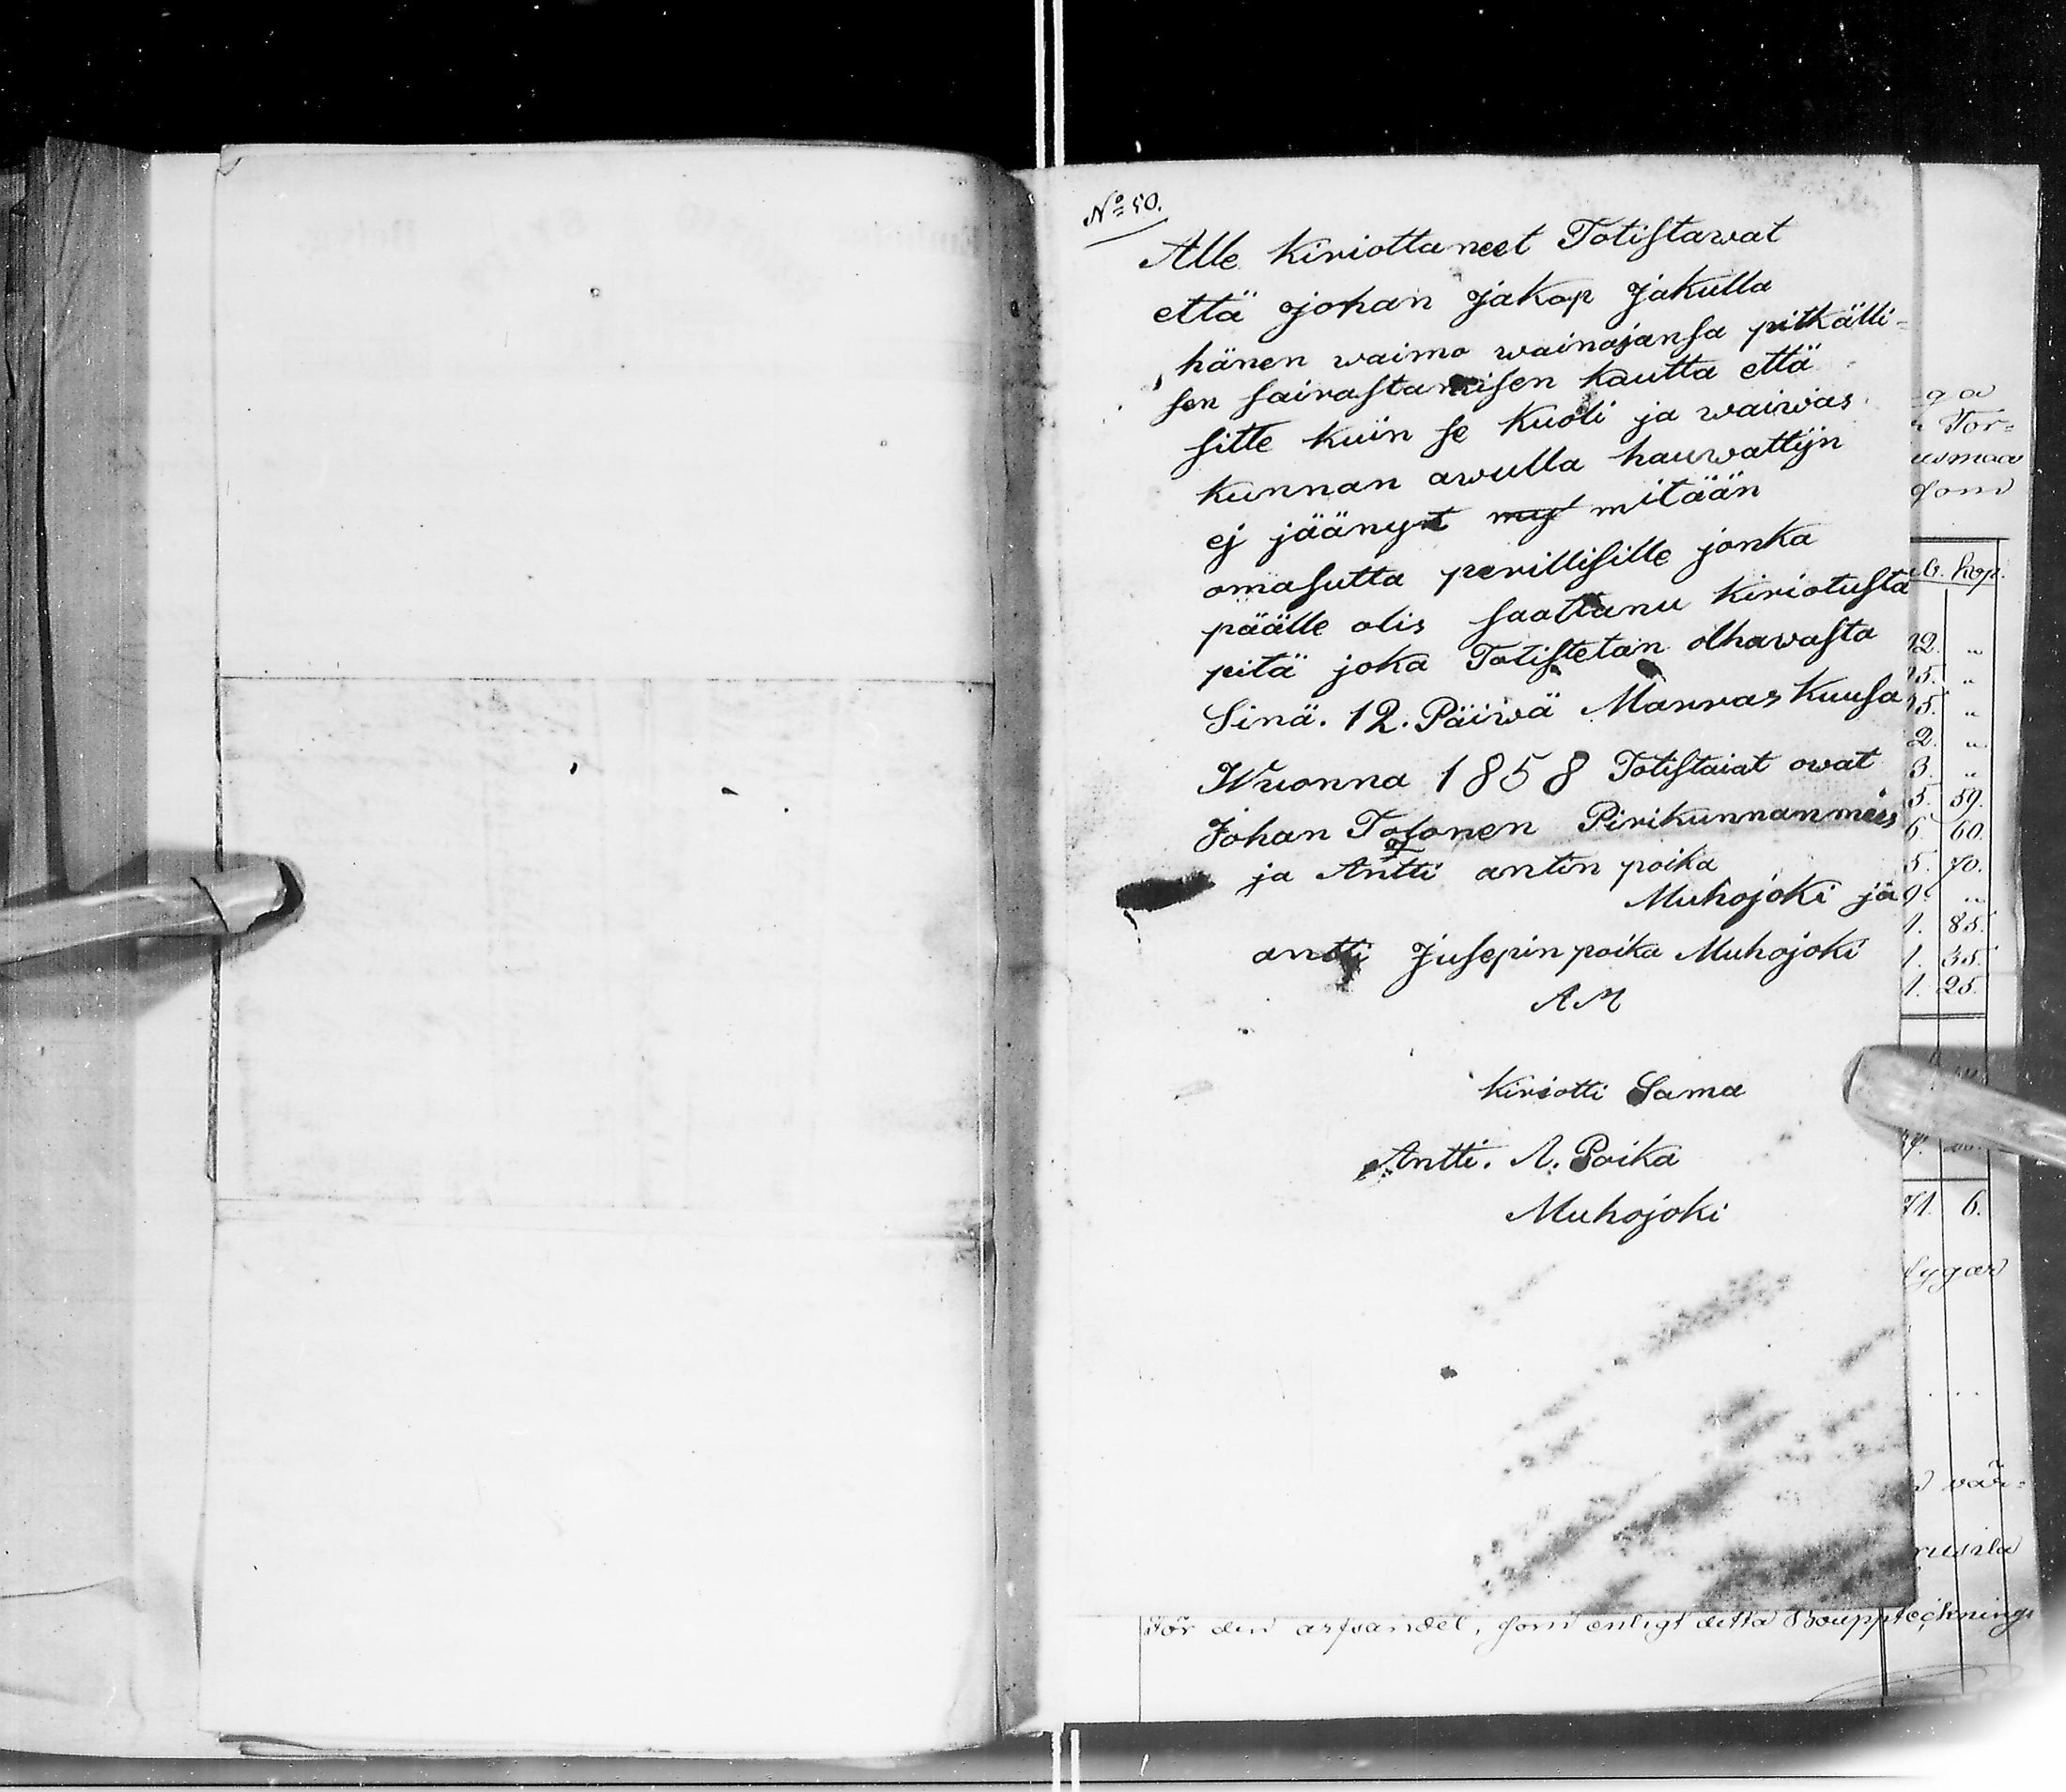 No 50.
Alle Kiriottaneet Totistawat
että johan jakop jakulla
hänen waimo wainajansa pitkälli=
sen sairastamisen kautta että
sitte kuin se kuoli ja waiwas
kunnan awulla hauwattijn
ej jäänyt mitään
omasutta perillisille jonka
päälle olis saattanu kiriotusta
pitä joka Totistetan olhawasta
Sinä. 12. Päiwä Marras kuusa
Wuonna 1858 Totistaiat owat
Johan Tolonen Pirikunnanmies
ja Antti antin poika
Muhojoki ja
antti Jusepin poika Muhojoki
AM
kiriotti Sama
Antti. A. Poika
Muhojoki
ga
Tor=
usmaa
som
kop.
12. "
15. "
15. "
2. "
3. "
5. 59.
6. 60.
5. 70.
9. "
1. 85.
1. 35.
1. 25.
71. 6.
lygar
wär=
för den arfsandel, som enligt detta Bouppteknings